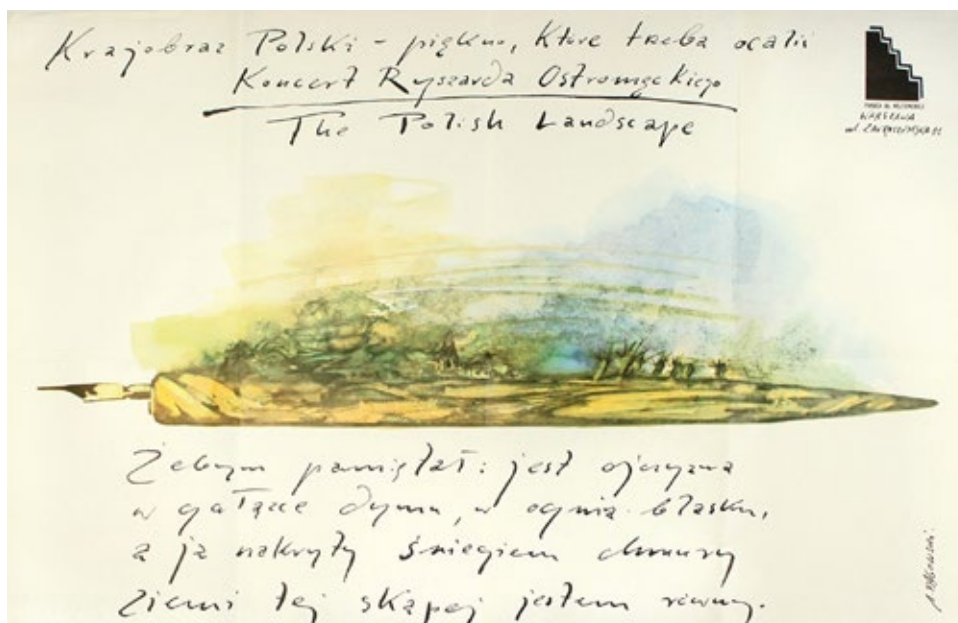 Krajobraz Polski – piękno, które trzeba ocalić
Koncert Ryszarda Ostromęckiego
The Polish Landscape
WARSZAWA
Żebym pamiętał: jest ojczyzna
w gałązce dymu, w ognia blasku,
a ja nakryty śniegiem chmury
ziemi tej skąpej jestem równy.